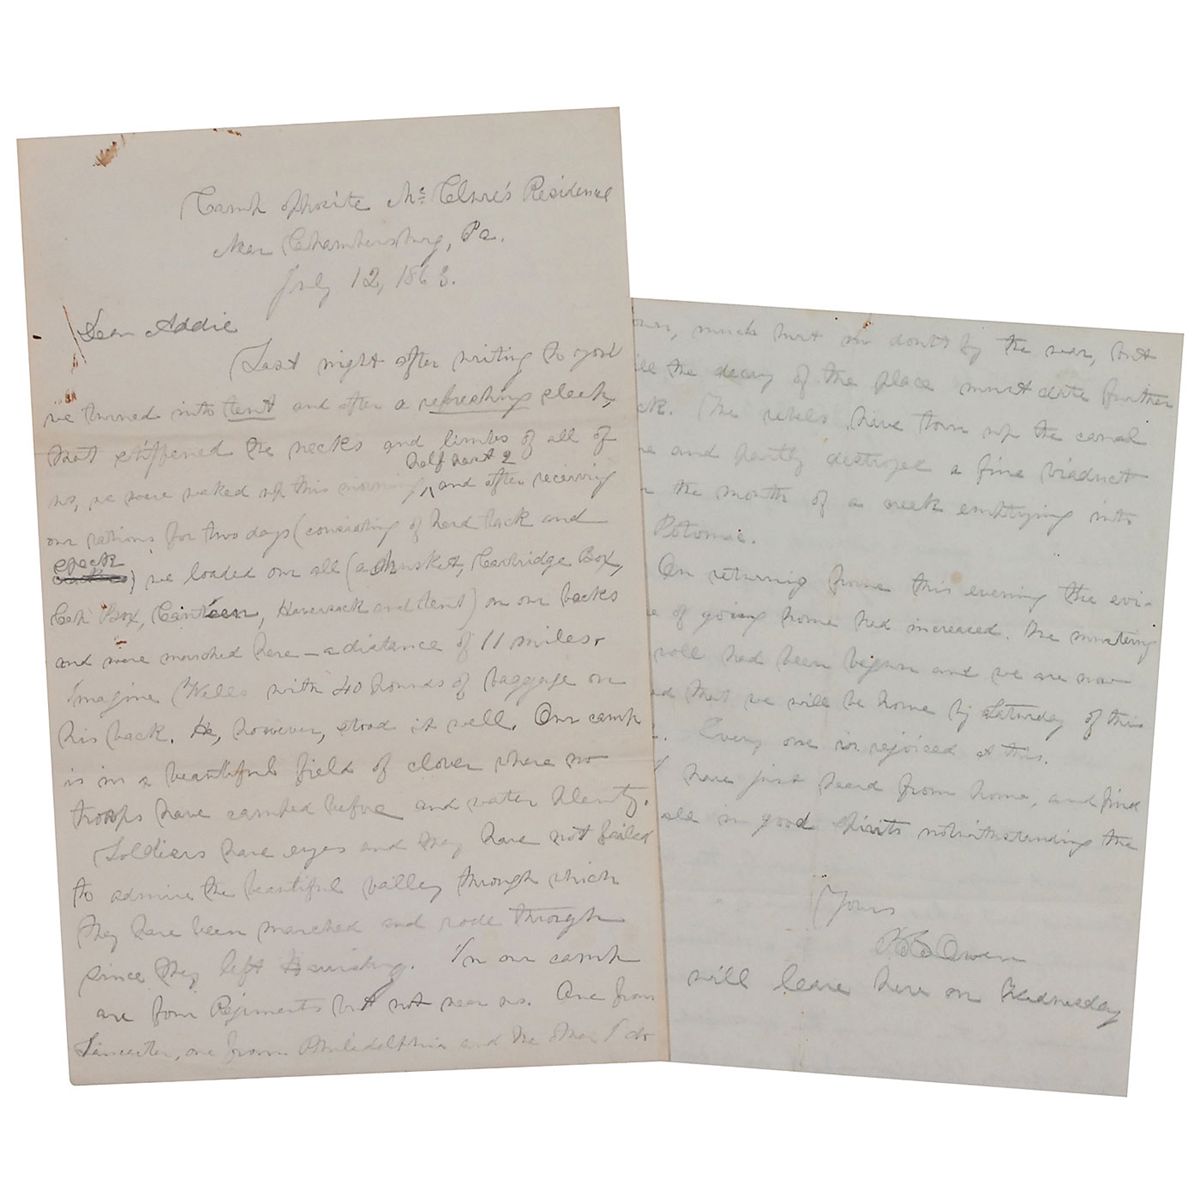 Camp opposite Mc Clure's Residence
Near Chambersburg, Pa.
July 12, 1863.
Dear Addie
Last night after writing to you
we turned into tent and after a refreshing sleep,
that stiffened the necks and limbs of all of
half past 2
us, we were waked up this morning, and after receiving
our rations for two days (consisting of hard tack and
) we loaded on all (a musket, Cartridge Box,
Cap Box, Canteen, Haversack and tent) on our backs
and were marched here – a distance of 11 miles.
Imagine Wells with 40 pounds of baggage on
his back. He, however, stood it well. Our camp
is in a beautiful field of clover where no
troops have camped before and water plenty.
Soldiers have eyes and they have not failed
to admire the beautiful valley through which
they have been marched and rode through
since they left Harrisburg. In our camp
are four Regiments but not near us. One from
Lancaster, one from Philidelphia and the other I do
much hurt no doubt by the war, but
the decay of the place must date further
The rebels have torn up the canal
and partly destroyed a fine viaduct
the mouth of a creek emptying into
Potomac.
On returning home this evening the evi-
of going home had increased. The mustering
roll had been begun and we are now
that we will be home by Saturday of this
Every one is rejoiced at this.
I have just heard from home, and find
all in good spirits notwithstanding the
Yours
Owen
will leave here on Wednesday